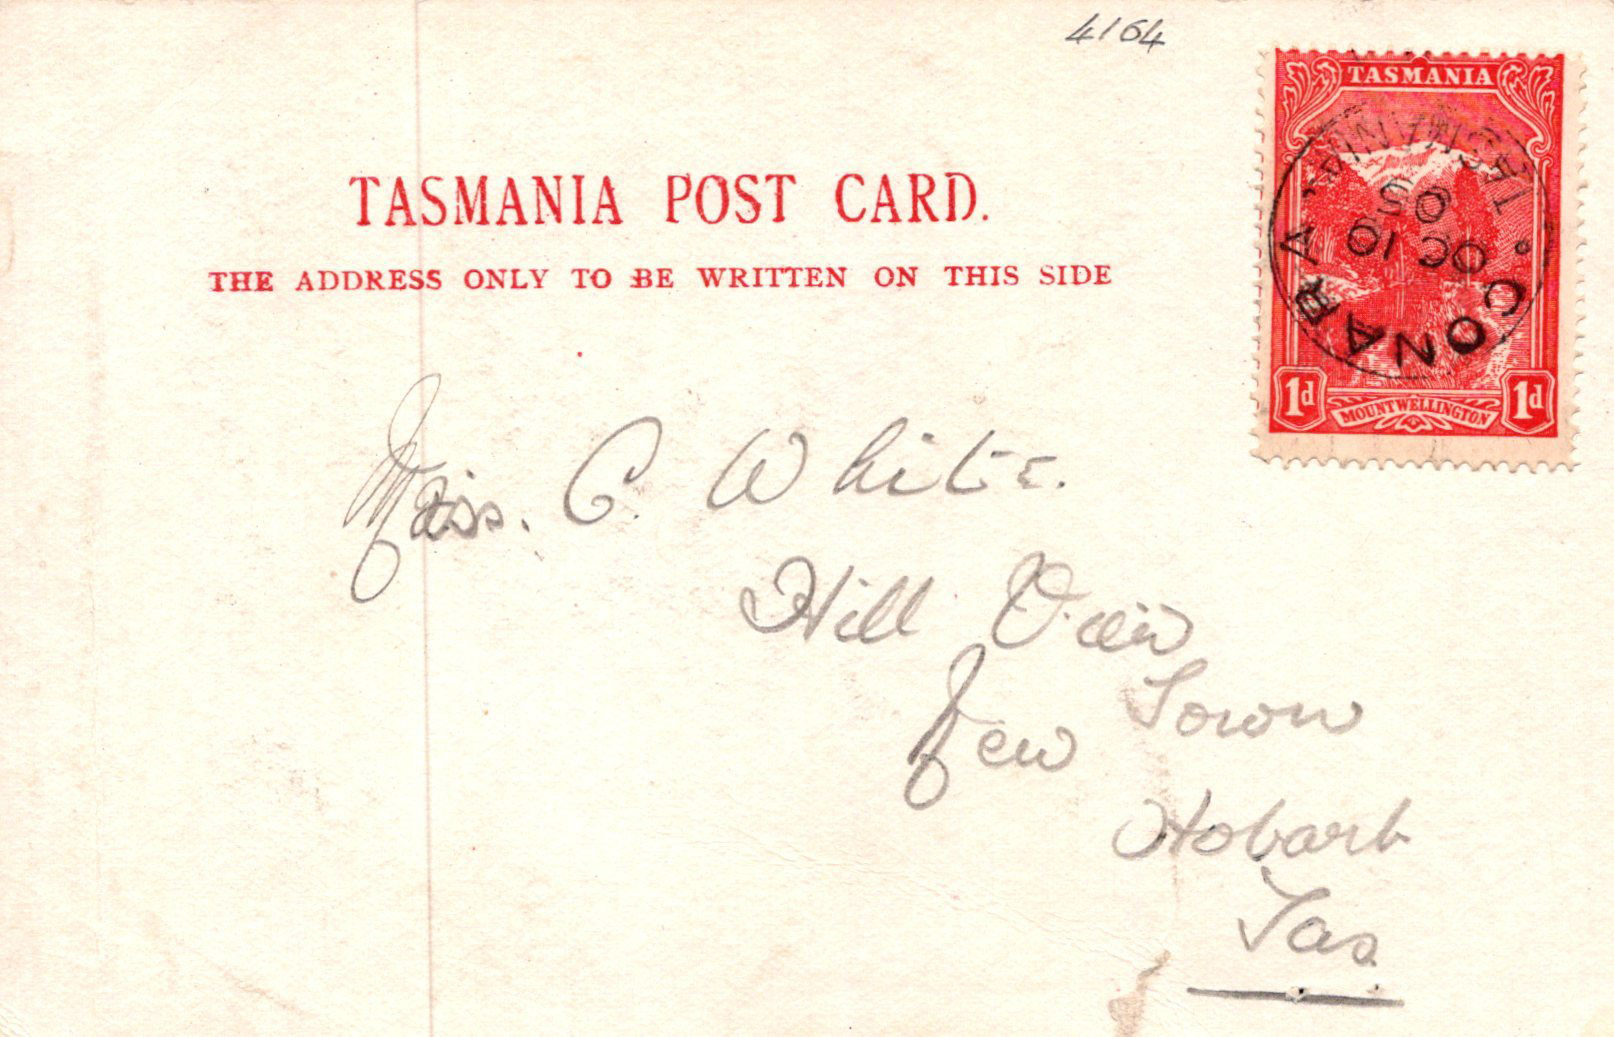 4164
TASMANIA POST CARD.
THE ADDRESS ONLY TO BE WRITTEN ON THIS SIDE
TASMANIA
CONARA
TASMANIA
OC 10
05
1d MOUNT WELLINGTON 1d
Miss. C. White.
Hill View
New Town
Hobart
Tas.